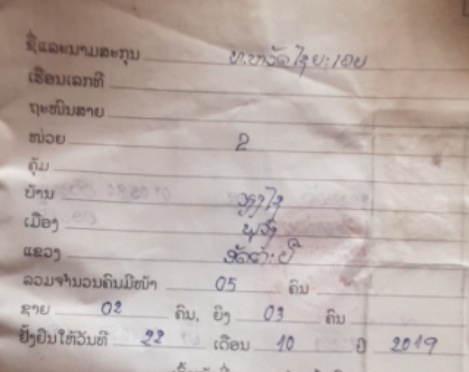 ຊື່ແລະນາມສະກຸນ ທ.
ເຮືອນເລກທີ
ຖະໜົນສາຍ
ໜ່ວຍ 2
ຄຸ້ມ
ບ້ານ
ເມືອງ
ແຂວງ ອັດຕະປື
ລວມຈຳນວນຄົນມີໜ້າ 05 ຄົນ
ຊາຍ 02 ຄົນ, ຍິງ 03 ຄົນ
ຢັ້ງຢືນໃຫ້ວັນທີ 22 ເດືອນ 10 ປີ 2019